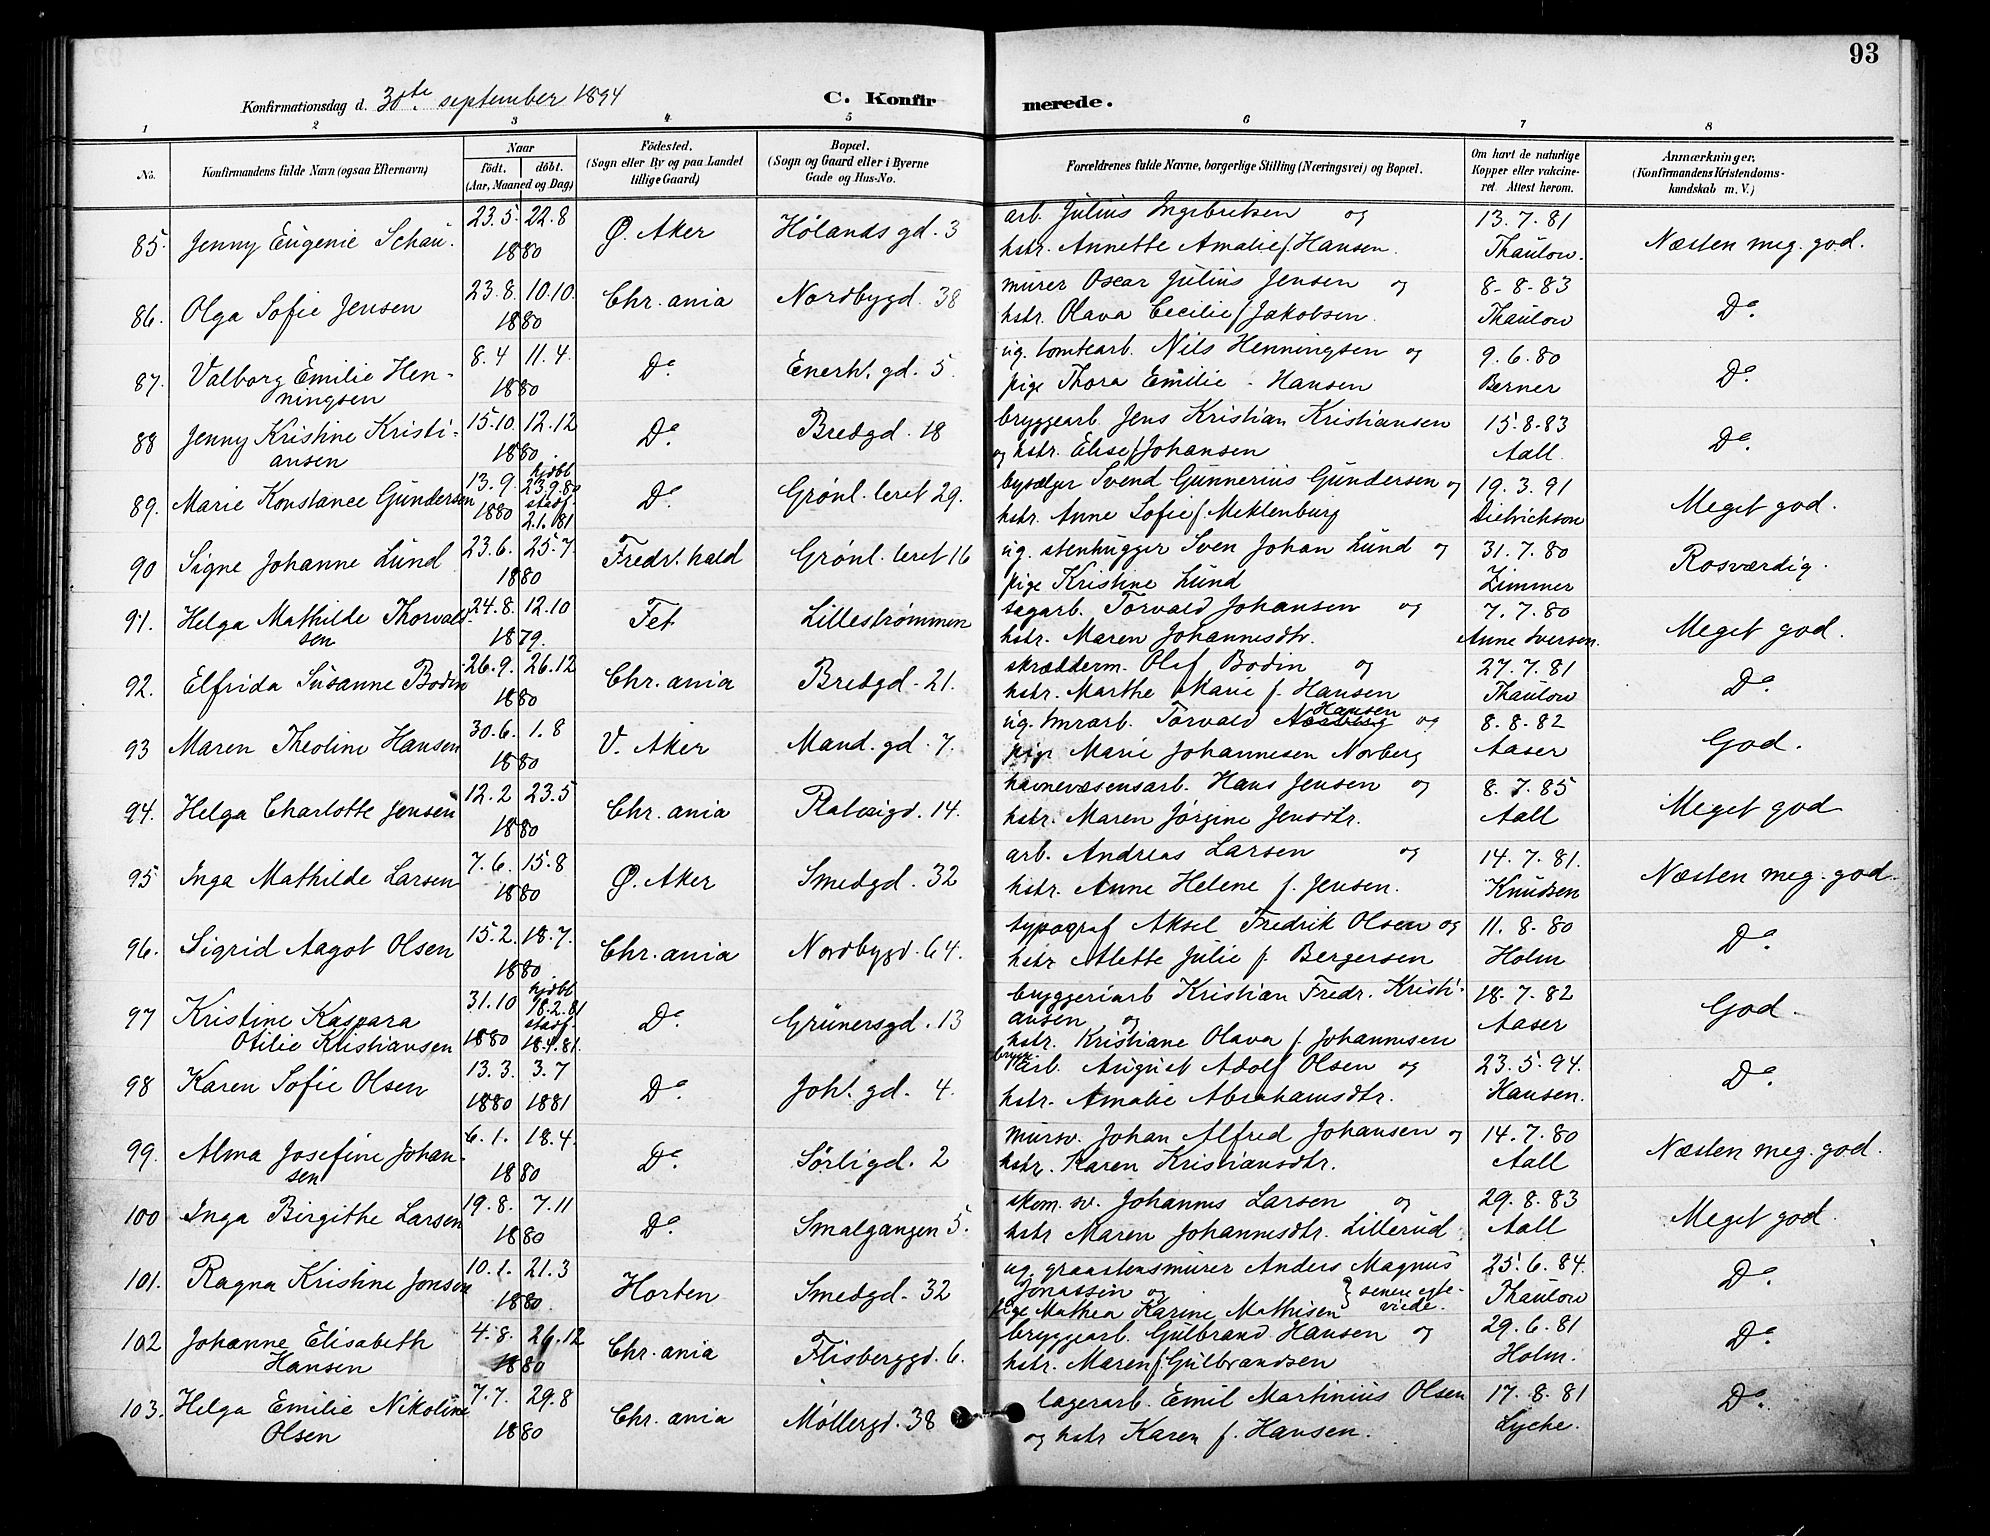 93
Konfirmationsdag d. 30te september 1894
C. Konfirmerede.
1 2 3 4 5 6 7 8
No.
Konfirmandens fulde Navn (ogsaa Efternavn)
Naar
födt. döbt.
(Aar, Maaned og Dag)
Födested.
(Sogn eller By og paa Landet
tillige Gaard)
Bopæl.
(Sogn og Gaard eller i Byerne
Gade og Hus-No.
Forældrenes fulde Navne, borgerlige Stilling (Næringsvei) og Bopæl.
Om havt de naturlige
Kopper eller vakcine-
ret. Attest herom.
Anmærkninger.
(Konfirmandens Kristendoms-
kundskab m. V.)
85. Jenny Eugenie Schau. 23.5. 22.8 1880 Ø. Aker Hølands gd. 3
arb. Julius Ingebretsen og
hstr. Annette Amalie f. Hansen.
13.7.81 Thaulow. Næsten meg. god.
86. Olga Sofie Jensen 23.8. 10.10. 1880 Chr.ania Nordbygd. 38
murer Oscar Julius Jensen og
hstr. Olava Cecilie f. Jakobsen.
8.8.83 Thaulow Do.
87. Valborg Emilie Hen-
ningsen 8.4 11.4. 1880 Do. Enerh. gd. 5.
ug. tomtearb. Nils Henningsen og
pige Thora Emilie Hansen
9.6.80 Berner Do.
88 Jenny Kristine Kristi-
ansen 15.10. 12.12 1880 Do. Bredgd. 18
bryggearb. Jens Kristian Kristiansen
og hstr. Elise f. Johansen
15.8.83 Aall. Do.
89. Marie Konstance Gundersen 13.9. 1880 hjdbt 23.9.80 stadf. 2.1.81 Do. Grønl. leret 29.
bysælger Svend Gunnerius Gundersen og
hstr. Anne Sofie f. Meklenburg
19.3.91 Dietrichson Meget god.
90 Signe Johanne Lund 23.6. 25.7. 1880 Fredr. hald Grønl. leret 16
ug. stenhugger Sven Johan Lund og
pige Kristine Lund
31.7.80 Zimmer Rosværdig.
91. Helga Mathilde Thorvald-
sen 24.8. 12.10 1879. Fet Lillestrømmen
sagarb. Torvald Johansen og
hstr. Maren Johannesdtr.
7.7.80 Anne Iversen. Meget god.
92. Elfrida Susanne Bodin 26.9. 26.12 1880 Chr.ania Bredgd. 21.
skrædderm. Olaf Bodin og
hstr. Marthe Marie f. Hansen
27.7.81 Thaulow Do.
93 Maren Theoline Hansen 30.6. 1.8 1880 V. Aker Mand. gd. 7.
Hansen
ug. tmrarb. Torvald og
pige Marie Johannesen Norberg
8.8.82 Aaser God.
94. Helga Charlotte Jensen 12.2 23.5 1880 Chr.ania Platousgd. 14.
havnevæsensarb. Hans Jensen og
hstr. Maren Jørgine Jensdtr.
8.7.85 Aall Meget god
95 Inga Mathilde Larsen 7.6. 15.8 1880 Ø. Aker Smedgd. 32
arb. Andreas Larsen og
hstr. Anne Helene f. Jensen.
14.7.81. Knudsen Næsten meg. god.
96. Sigrid Aagot Olsen 15.2. 18.7. 1880 Chr.ania Nordbygd. 64.
typograf Aksel Fredrik Olsen og
hstr Alette Julie f. Bergersen
11.8.80 Holm Do.
97 Kristine Kaspara
Otilie Kristiansen 31.10 1880 hjdbt 18.2.81 stadf. 18.4.81. Do. Grünersgd. 13
bryggeriarb Kristian Fredr. Kristi-
ansen og
hstr. Kristiane Olava f. Johannesen
18.7.82 Aaser God.
98 Karen Sofie Olsen 13.3. 3.7 1880 1881 Do. Joh. gd. 4.
arb. August Adolf Olsen og
hstr. Amalie Abrahamsdtr.
23.5.94. Hansen. Do.
99. Alma Josefine Johan-
sen 6.1. 18.4. 1880 Do. Sørligd. 2
mursv. Johan Alfred Johansen og
hstr. Karen Kristiansdtr.
14.7.80 Aall Næsten meg. god.
100 Inga Birgithe Larsen 19.8. 7.11 1880 Do. Smalgangen 5.
skom.sv. Johannes Larsen og
hstr Maren Johannesdtr. Lillerud
29.8.83 Aall Meget god.
101. Ragna Kristine Jonsen 10.1. 21.3 1880. Horten Smedgd. 32
ug. graastensmurer Anders Magnus
Jonassen og } senere egte-
pige Mathea Karine Mathisen } viede.
25.6.84. Thaulow Do.
102 Johanne Elisabeth
Hansen 4.8. 26.12 1880 Chr.ania Flisberggd. 6.
bryggearb. Gulbrand Hansen og
hstr. Maren f. Gulbrandsen
29.6.81 Holm. Do.
103. Helga Emilie Nikoline
Olsen 7.7. 29.8 1880 Chr.ania Møllergd. 38
lagerarb. Emil Martinius Olsen
og hstr Karen f. Hansen.
17.8.81 Lyche. Do.